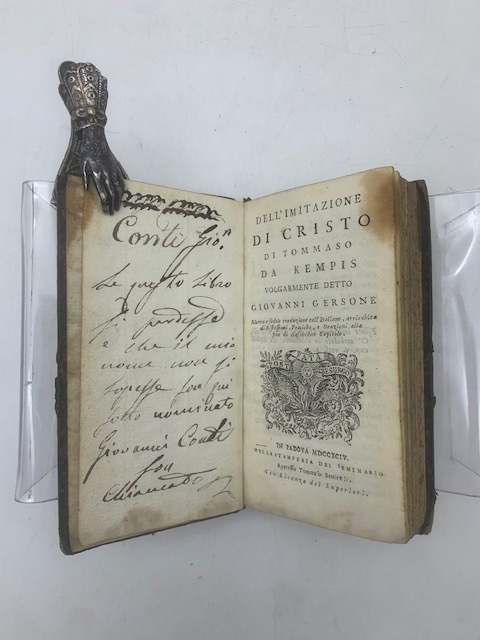 Conti Gio.n
Se questo Libro
si perdesse
e che il mio
nome non si
sapesse son qui
sotto nominato
Giovanni Conti
son
chiamato
DELL'IMITAZIONE
DI CRISTO
DI TOMMASO
DA KEMPIS
VOLGARMENTE DETTO
GIOVANNI GERSONE
Nuova e fedele traduzione nell'Italiano, arricchita
di Riflessioni, Pratiche, e Orazioni, alla
fine di ciaschedun Capitolo.
POST FATA RESURGO
IN PADOVA MDCCXCIV.
NELLA STAMPERIA DEL SEMINARIO
Appresso Tommaso Bettinelli.
Con Licenza dei Superiori.